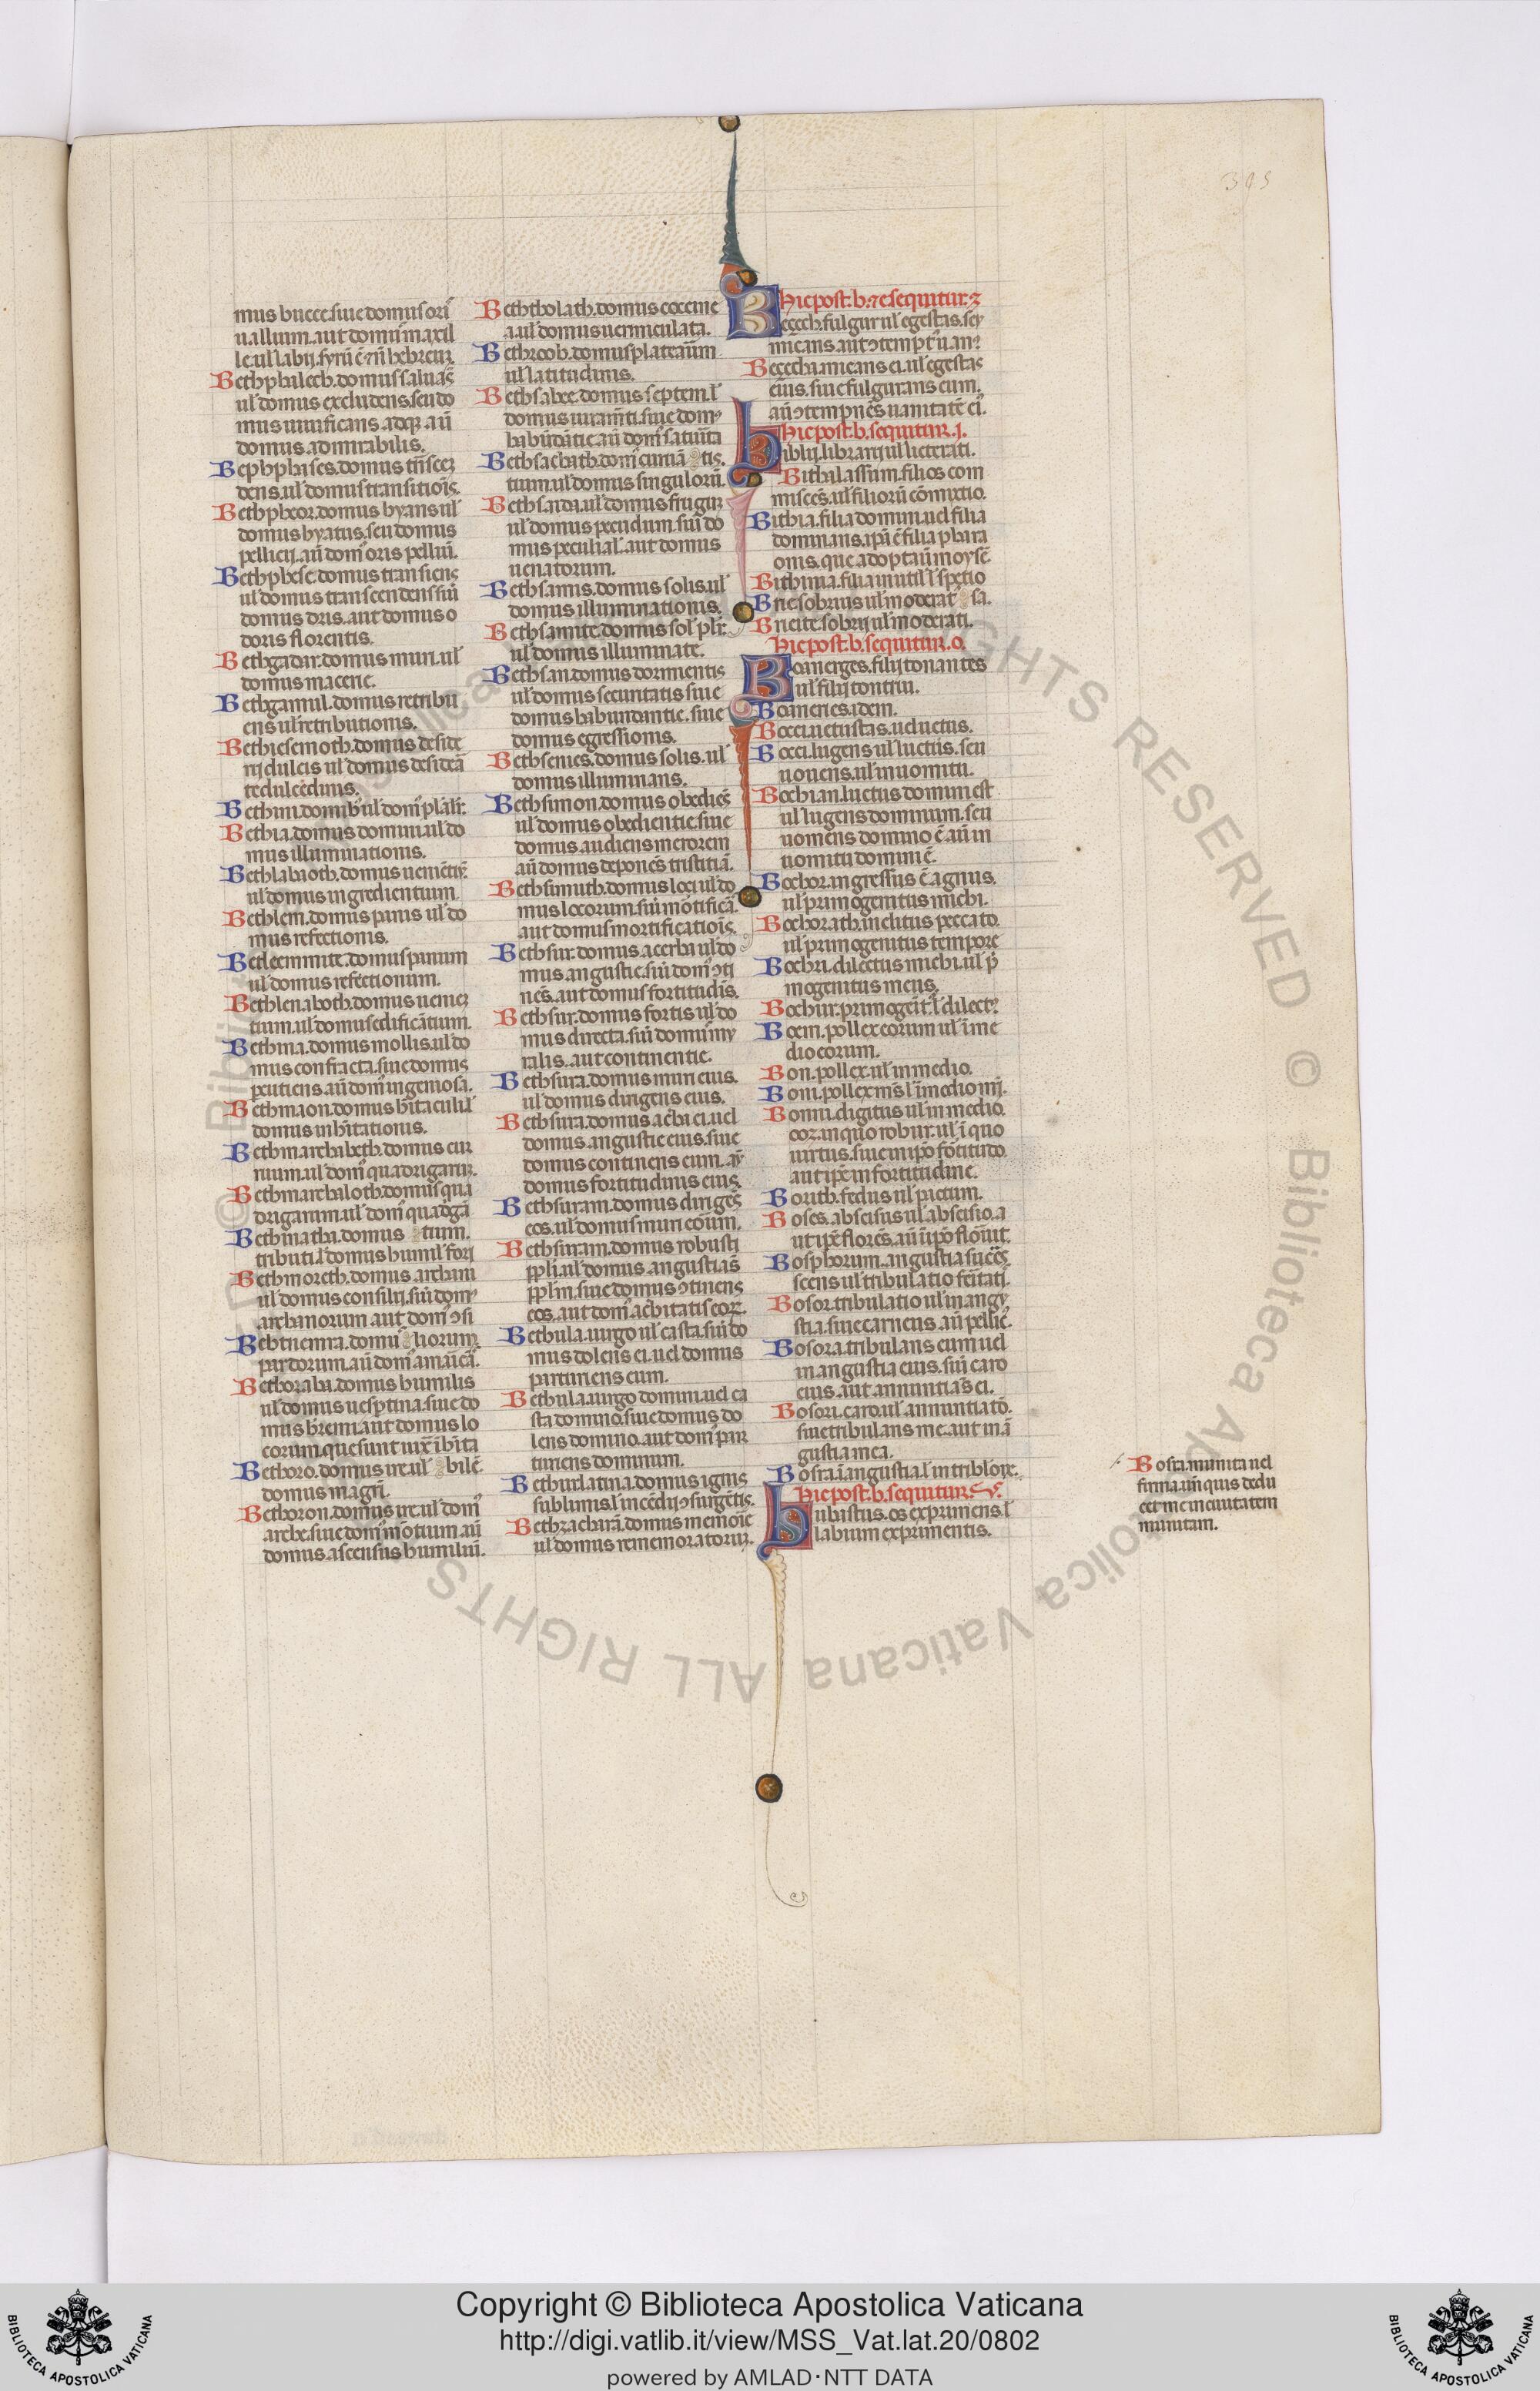 395
mus bucce. siue domus ori
uallium. aut domꝰ maxil
le ul labij. syrū ē ⁊ nō hebreuȝ.
Bethphilech. domus saluās
ul domus excludens. seu do
mus uiuificans. adqȝ aū
domus admirabilis.
Bephphases. domus trīscen
dens. ul domus transitiōis.
Bethpheor. domus hyans ul
domus hyatus. seu domus
pellicij. aū domꝰ oris pelliū.
Bethphese. domus transiens
ul domus transcendens siū
domus oris. aut domus o
doris florentis.
Bethgadir. domus muri. ul
domus macerie.
Bethgamul. domus retribu
ens ul retributionis.
Bethiesemoth. domus deside
rij dulcis ul domus desiderā
te dulcēdinis.
Bethim. domibꝰ ul domꝰ plāli.
Bethia. domus domini. ul do
mus illuminationis.
Bethlabaoth. domus ueniētiȝ.
ul domus ingredientium.
Bethlem. domus panis ul do
mus refectionis.
Betleemmite. domus panum
ul domus refectionum.
Bethlenaboth. domus uenien
tium. ul domus edificātium.
Bethma. domus mollis. ul do
mus confracta. siue domus
peutiens aū domꝰ ingeniosa.
Bethmaon. domus hītaculi ul
domus inhītationis.
Bethmarchabeth. domus cur
ruum. ul domꝰ quadrigaruȝ.
Bethmarchaloth. domus qua
drigarum. ul domꝰ quadgā
Bethmatha. domus tum.
tributi. l domus humil fori
Bethmoreth. domus archani
ul domus consilij. siū domꝰ
archanorum aut domꝰ ꝯsi
Bebtnemra. domꝰ liorum.
pardorum. aū domꝰ amaricā.
Bethoraba. domus humilis
ul domus uesptina. siue do
mus hremi. aut domus lo
corum. que sunt iuxͣ ihīta
Bethoro. domus ire ul bilē.
domus magri.
Bethoron. domus ire ul domꝰ
arche. siue domꝰ mōtium. aū
domus ascensus humiliū.
Beththolath. domus coccine
a. ul domus uermiculata.
Bethroob. domus plateaūm
ul latitudinis.
Bethsabee. domus septem. l
domus iuramīti. siue domꝰ
habūdātie. aū domꝰ satuīta
Bethsachath. domꝰ cunctā tis.
tium. ul domus singulorū.
Bethsaida. ul domus frugum
ul domus pecudum. siū do
mus peculialꝭ. aut domus
uenatorum.
Bethsamis. domus solis. ul
domus illuminationis.
Bethsamite. domus sol plr.
ul domus illuminate.
Bethsan. domus dormientis
ul domus securitatis siue
domus habundantie. siue
domus egressionis.
Bethsemes. domus solis. ul
domus illuminans.
Bethsimon. domus obediēs
ul domus obedientie. siue
domus audiens merorem
aū domus deponēs tristitiā.
Bethsimuth. domus loci ul do
mus locorum. siū mōtificā.
aut domus mortificatiōis.
Bethsur. domus acerba ul do
mus angustie. siū domꝰ ꝯti
nēs. aut domus fortitudīs.
Bethsur. domus fortis ul do
mus directa. siū domus my
ralis. aut continentie.
Bethsura. domus muri eius.
ul domus dirigens eius.
Bethsura. domus acba ei. uel
domus angustie eius. siue
domus continens eum. aū
domus fortitudinis eius.
Bethsuram. domus dirigēs
eos. ul domus muri eoūm.
Bethsuram. domus robusti
ppli. ul domus angustias
pplm. siue domus ꝯtinens
eos. aut domꝰ acbitatis eoȝ.
Bethula. uirgo ul casta. siū do
mus dolens ei. uel domus
parturiens eum.
Bethula. uirgo domini. uel ca
sta domino. siue domus do
lens domino. aut domꝰ par
turiens dominum.
Bethurlatina. domus ignis
sublimis. l incēdij ꝯsurgētis.
Bethzacharā. domus memorie
ul domus rememoratoruȝ.
Hic post. b. ⁊ e sequitur. z
Bezech. fulgur ul egestas. seu
micans. aut ꝯtempt ū an
Bezecha. micans ei. ul egestas
eius. siue fulgurans eum.
aū ꝯtempnēs uanitatē ei.
Hic post. b. sequitur. j.
Biblij. librarij ul litterati.
Bithalassum. filios com
miscēs. ul filiorū cōmixtio.
Bithia. filia domini. uel filia
dominans. ipa ē filia phara
onis. que adoptauit moysē
Bithinia. filia inutil l spetio
Brie. sobrius ul moderat sa.
Bricite. sobrij ul moderati.
Hic post. b. sequitur. o.
Boanerges. filij tonantes
ul filij tonitrui.
Boaneries. idem.
Bocci. uetustas. uel uctus.
Bocci. lugens ul luctus. seu
uouens. ul in uomitu.
Bochian. luctus domini est
ul lugens dominum. seu
uomens domino ē. aū in
uomitu domini ē.
Bochor. ingressus ē agnus.
ul primogenitus michi.
Bochorath. inclitus peccato.
ul primogenitus tempore
Bochri. dilectus michi. ul pͥ
mogenitus meus.
Bochur. primogēit. l dilectꝰ.
Boem. pollex eorum ul ī me
dio eorum.
Bon. pollex. ul in medio.
Boni. pollex mīs l ī medio mī.
Bonni. digitus ul in medio
eoȝ. in quo robur. ul ī quo
uirtus. siue in ipo fōtitudo.
aut ipe in fortitudine.
Borith. fedus ul pictum.
Boses. abscisus ul abscisio. a
ut ipe florēs. aū ī ipo floruit.
Bosphorum. angustia sucēs
scens ul tribulatio feritati.
Bosor. tribulatio ul in angu
stia. siue carneus. aū pellic.
Bosora. tribulans eum uel
in angustia eius. siū caro
eius. aut annuntiās ei.
Bosori. caro. ul annuntiatō.
siue tribulans me. aut in ā
gustia mea.
Bosra. ī angustia. l in triblōre.
Hic post. b. sequitur. V.
Bubastus. os exprimens. l
labium exprimentis.
Bosra. munita uel
firma. uñ quis dedu
cet me in ciuitatem
munitam.
Copyright © Biblioteca Apostolica Vaticana
http://digi.vatlib.it/view/MSS_Vat.lat.20/0802
powered by AMLAD·NTT DATA
BIBLIOTECA APOSTOLICA VATICANA
BIBLIOTECA APOSTOLICA VATICANA
© Biblioteca Apostolica Vaticana ALL RIGHTS RESERVED